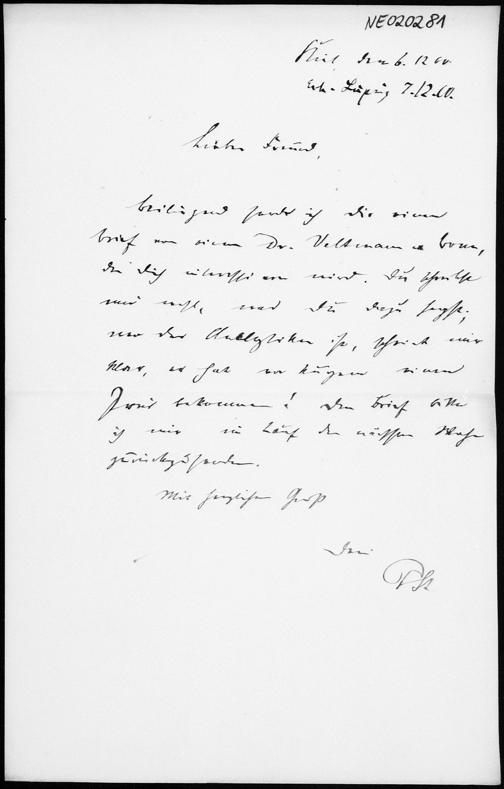 NE020281
Kiel, den 6. 12 00.
Erh. Leipzig 7.12.00.
Lieber Freund,
beiliegend sende ich Dir einen
Brief von einem Dr. Veltmann Bonn,
der Dich interessiren wird. Du schreibst
mir wohl, was Du dazu sagst;
wer der ist, schrieb mir
er hat vor kurzem einen
bekommen! Den Brief bitte
ich mir im Lauf der nächsten Woche
zurückzusenden.
Mit herzlichem Gruß
Dein
PSt